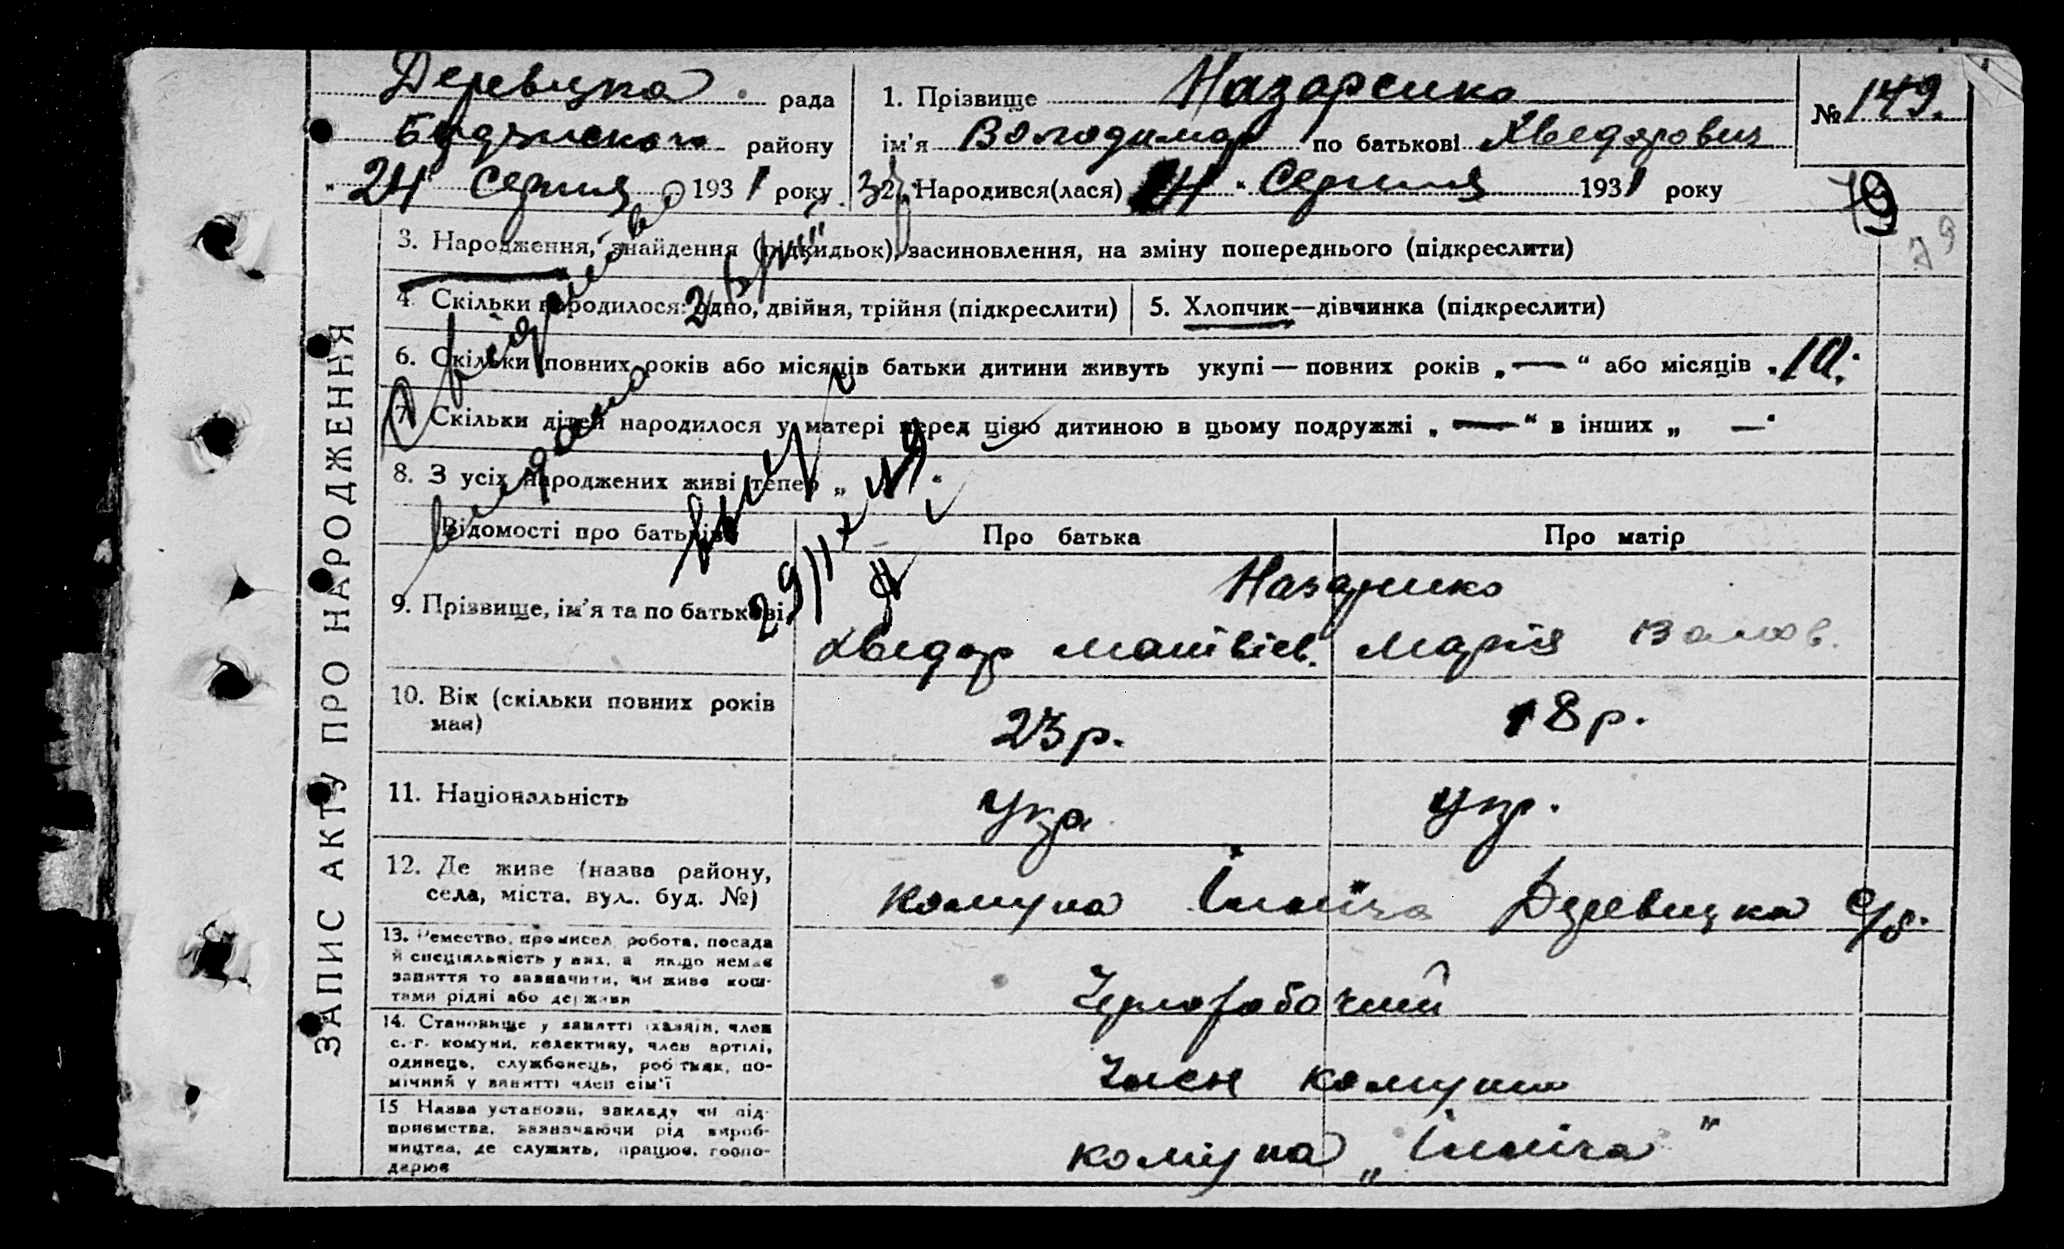 Деревицка рада
району
"24" Серпня 1931 року
1. Прізвище Назаренко
ім'я Володимир по батькові Хведорович
№ 149.
2. Народився(лася) 24 " Серпня 1931 року
79
79
3. Народження, знайдення (підкидьок), засиновлення, на зміну попереднього (підкреслити)
4. Скільки народилося: одно, двійня, трійня (підкреслити)
5. Хлопчик—дівчинка (підкреслити)
6. Скільки повних років або місяців батьки дитини живуть укупі — повних років „ — " або місяців „ 10.
7. Скільки дітей народилося у матері перед цією дитиною в цьому подружжі „ — " в інших „ — "
8. З усіх народжених живі тепер „ "
видано
Відомості про батьків
Про батька
Про матір
9. Прізвище, ім'я та по батькові
Назаренко
Хведор Матвієв.
Марія
10. Вік (скільки повних років має)
23 р.
18 р.
11. Національність
Укр.
Укр.
12. Де живе (назва району,
села, міста, вул. буд. №)
комуна Ілліча Деревицка с/р.
13. Ремество, промисел, робота, посада
й спеціяльність у них, а якщо немає
заняття то зазначити, чи живе кош-
тами рідні або держави
Чорноробочий
14. Становище у занятті (хазяїн, член
с.-г. комуни, колективу, член артілі,
одинець, службовець, робітник, по-
мічний у занятті член сім'ї
Член комуни
15 Назва установи, закладу чи під-
приємства, зазначаючи рід вироб-
ництва, де служить, працює, госпо-
дарює
комуна „Ілліча"
ЗАПИС АКТУ ПРО НАРОДЖЕННЯ